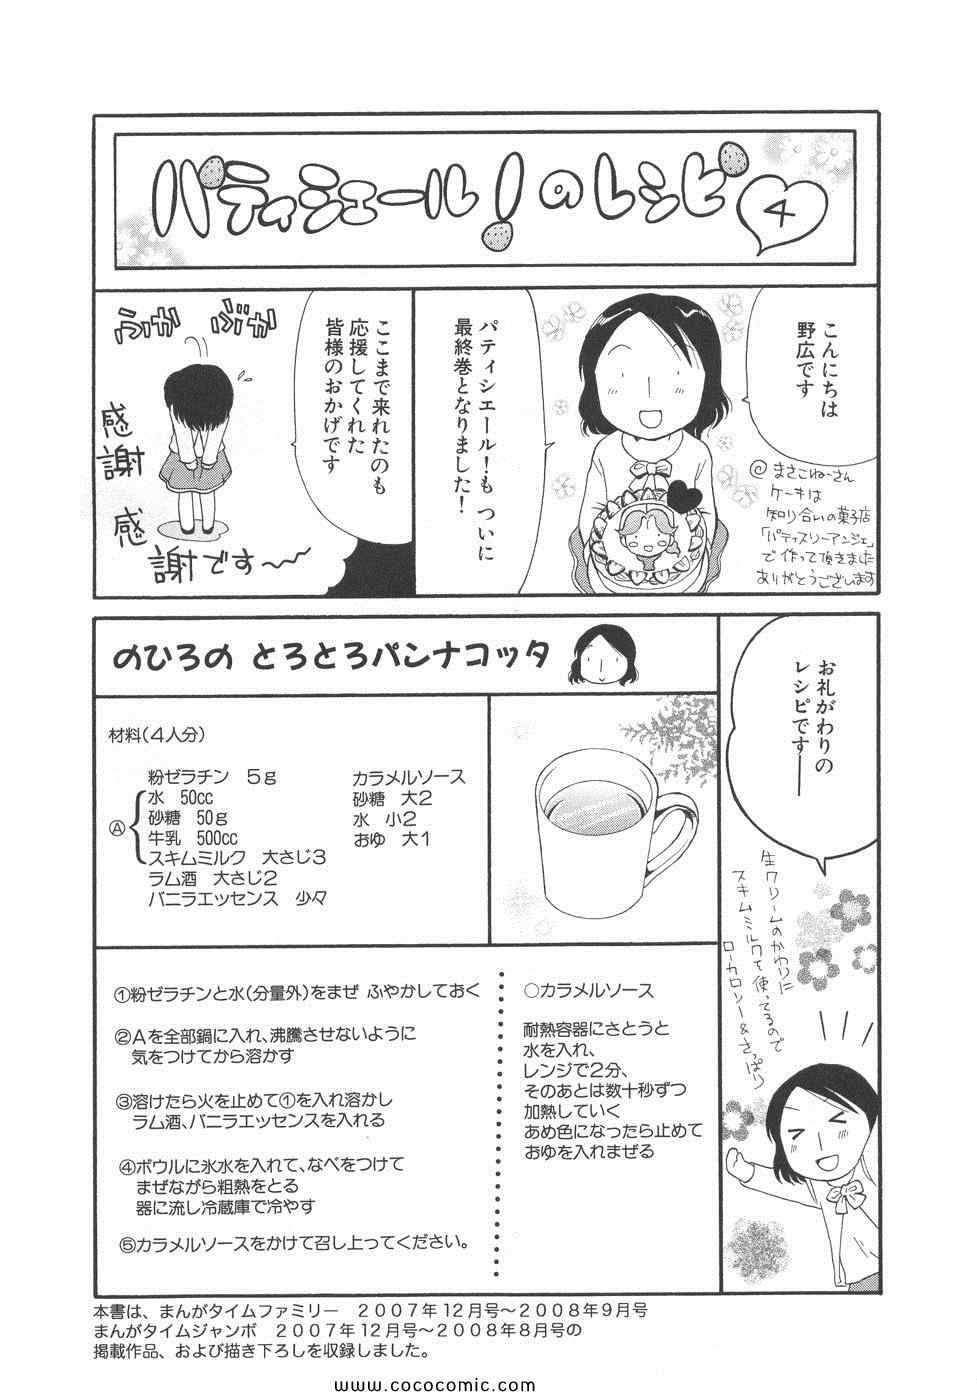 パティシエール！のレシピ 4
こんにちは
野広です
@まさこねーさん
ケーキは
知り合いの菓子店
「パティスリーアンジェ」
で作って頂きました
ありがとうございます
パティシエール！も ついに
最終巻となりました！
ここまで来れたのも
応援してくれた
皆様のおかげです
ふか ぶか
感謝
感謝です〜
お礼がわりの
レシピです──
生クリームのかわりに
スキムミルクを使ってるので
ローカロリー&さっぱり
のひろの とろとろパンナコッタ
材料(4人分)
粉ゼラチン 5g
Ⓐ
水 50cc
砂糖 50g
牛乳 500cc
スキムミルク 大さじ3
ラム酒 大さじ2
バニラエッセンス 少々
カラメルソース
砂糖 大2
水 小2
おゆ 大1
①粉ゼラチンと水(分量外)をまぜ ふやかしておく
②Aを全部鍋に入れ、沸騰させないように
気をつけてから溶かす
③溶けたら火を止めて①を入れ溶かし
ラム酒、バニラエッセンスを入れる
④ボウルに氷水を入れて、なべをつけて
まぜながら粗熱をとる
器に流し冷蔵庫で冷やす
⑤カラメルソースをかけて召し上ってください。
○カラメルソース
耐熱容器にさとうと
水を入れ、
レンジで2分、
そのあとは数十秒ずつ
加熱していく
あめ色になったら止めて
おゆを入れまぜる
本書は、まんがタイムファミリー 2007年12月号〜2008年9月号
まんがタイムジャンボ 2007年12月号〜2008年8月号の
掲載作品、および描き下ろしを収録しました。
www.cococomic.com